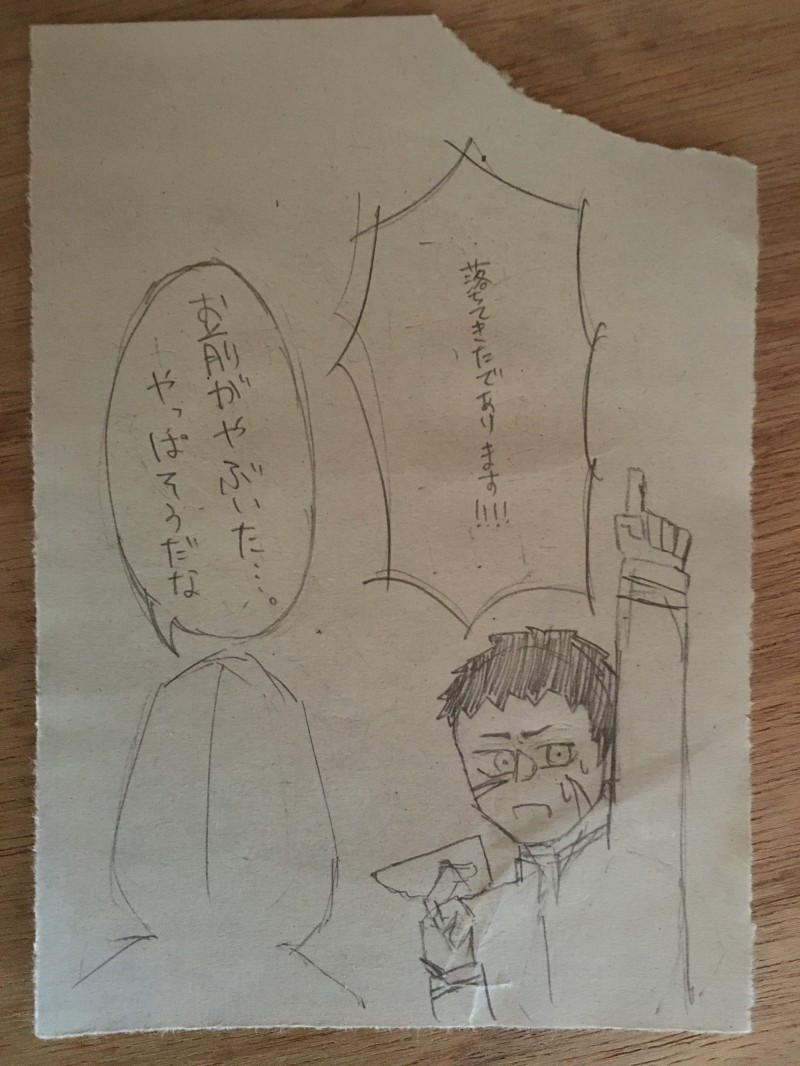 落ちてきたであります!!!!
お前がやぶいた…。
やっぱそうだな